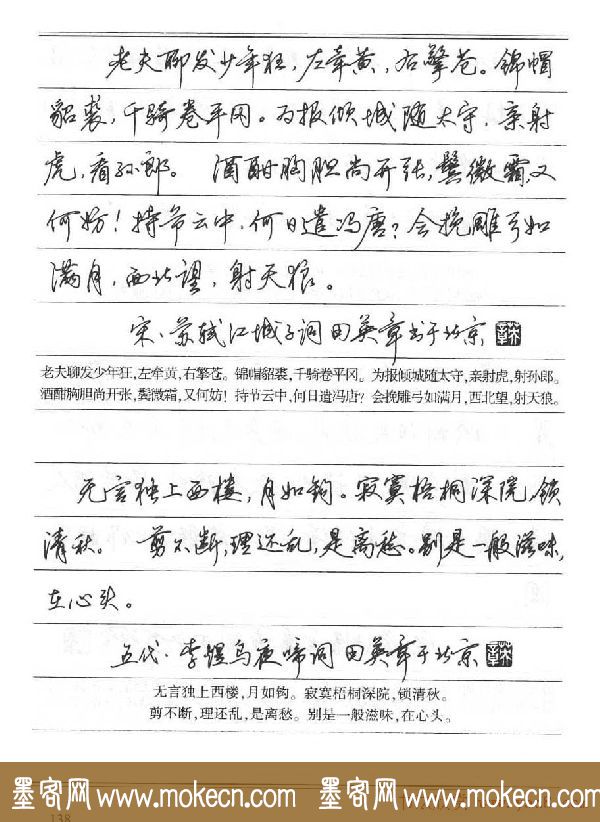 老夫聊发少年狂，左牵黄，右擎苍。锦帽
貂裘，千骑卷平冈。为报倾城随太守，亲射
虎，看孙郎。 酒酣胸胆尚开张，鬓微霜，又
何妨！持节云中，何日遣冯唐？会挽雕弓如
满月，西北望，射天狼。
宋·苏轼江城子词 田英章书于北京
老夫聊发少年狂，左牵黄，右擎苍。锦帽貂裘，千骑卷平冈。为报倾城随太守，亲射虎，射孙郎。
酒酣胸胆尚开张，鬓微霜，又何妨！持节云中，何日遣冯唐？会挽雕弓如满月，西北望，射天狼。
无言独上西楼，月如钩。寂寞梧桐深院，锁
清秋。 剪不断，理还乱，是离愁。别是一般滋味，
在心头。
五代·李煜乌夜啼词 田英章于北京
无言独上西楼，月如钩。寂寞梧桐深院，锁清秋。
剪不断，理还乱，是离愁。别是一般滋味，在心头。
墨客网 www.mokecn.com 墨客网 www.mokecn.com
138